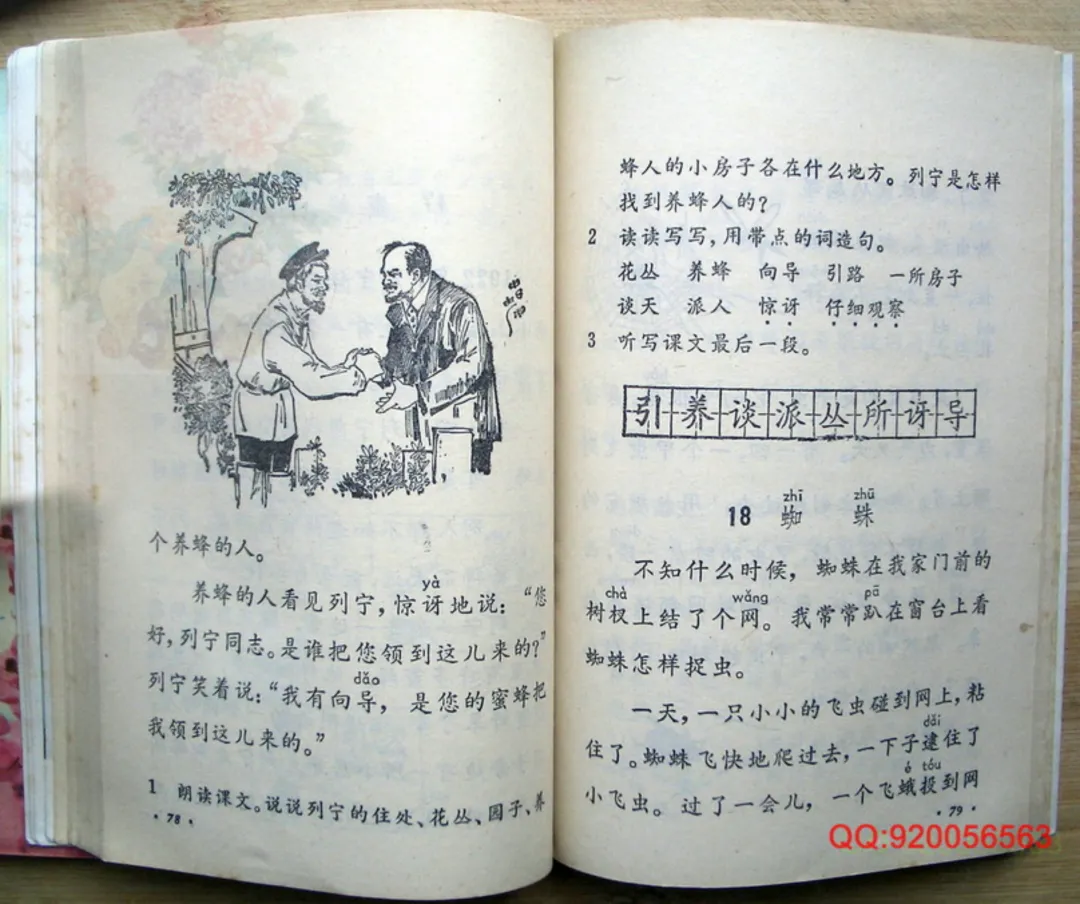 个养蜂的人。
yà
养蜂的人看见列宁,惊讶地说:“您
好,列宁同志。是谁把您领到这儿来的?”
dǎo
列宁笑着说:“我有向导,是您的蜜蜂把
我领到这儿来的。”
1 朗读课文。说说列宁的住处、花丛、园子、养
·78·
蜂人的小房子各在什么地方。列宁是怎样
找到养蜂人的?
2 读读写写,用带点的词造句。
花丛 养蜂 向导 引路 一所房子
谈天 派人 惊讶 仔细观察
3 听写课文最后一段。
引养谈派丛所讶导
zhī zhū
18 蜘 蛛
不知什么时候,蜘蛛在我家门前的
chà wǎng pā
树杈上结了个网。我常常趴在窗台上看
蜘蛛怎样捉虫。
一天,一只小小的飞虫碰到网上,粘
dǎi
住了。蜘蛛飞快地爬过去,一下子逮住了
é tóu
小飞虫。过了一会儿,一个飞蛾投到网
·79·
QQ:920056563